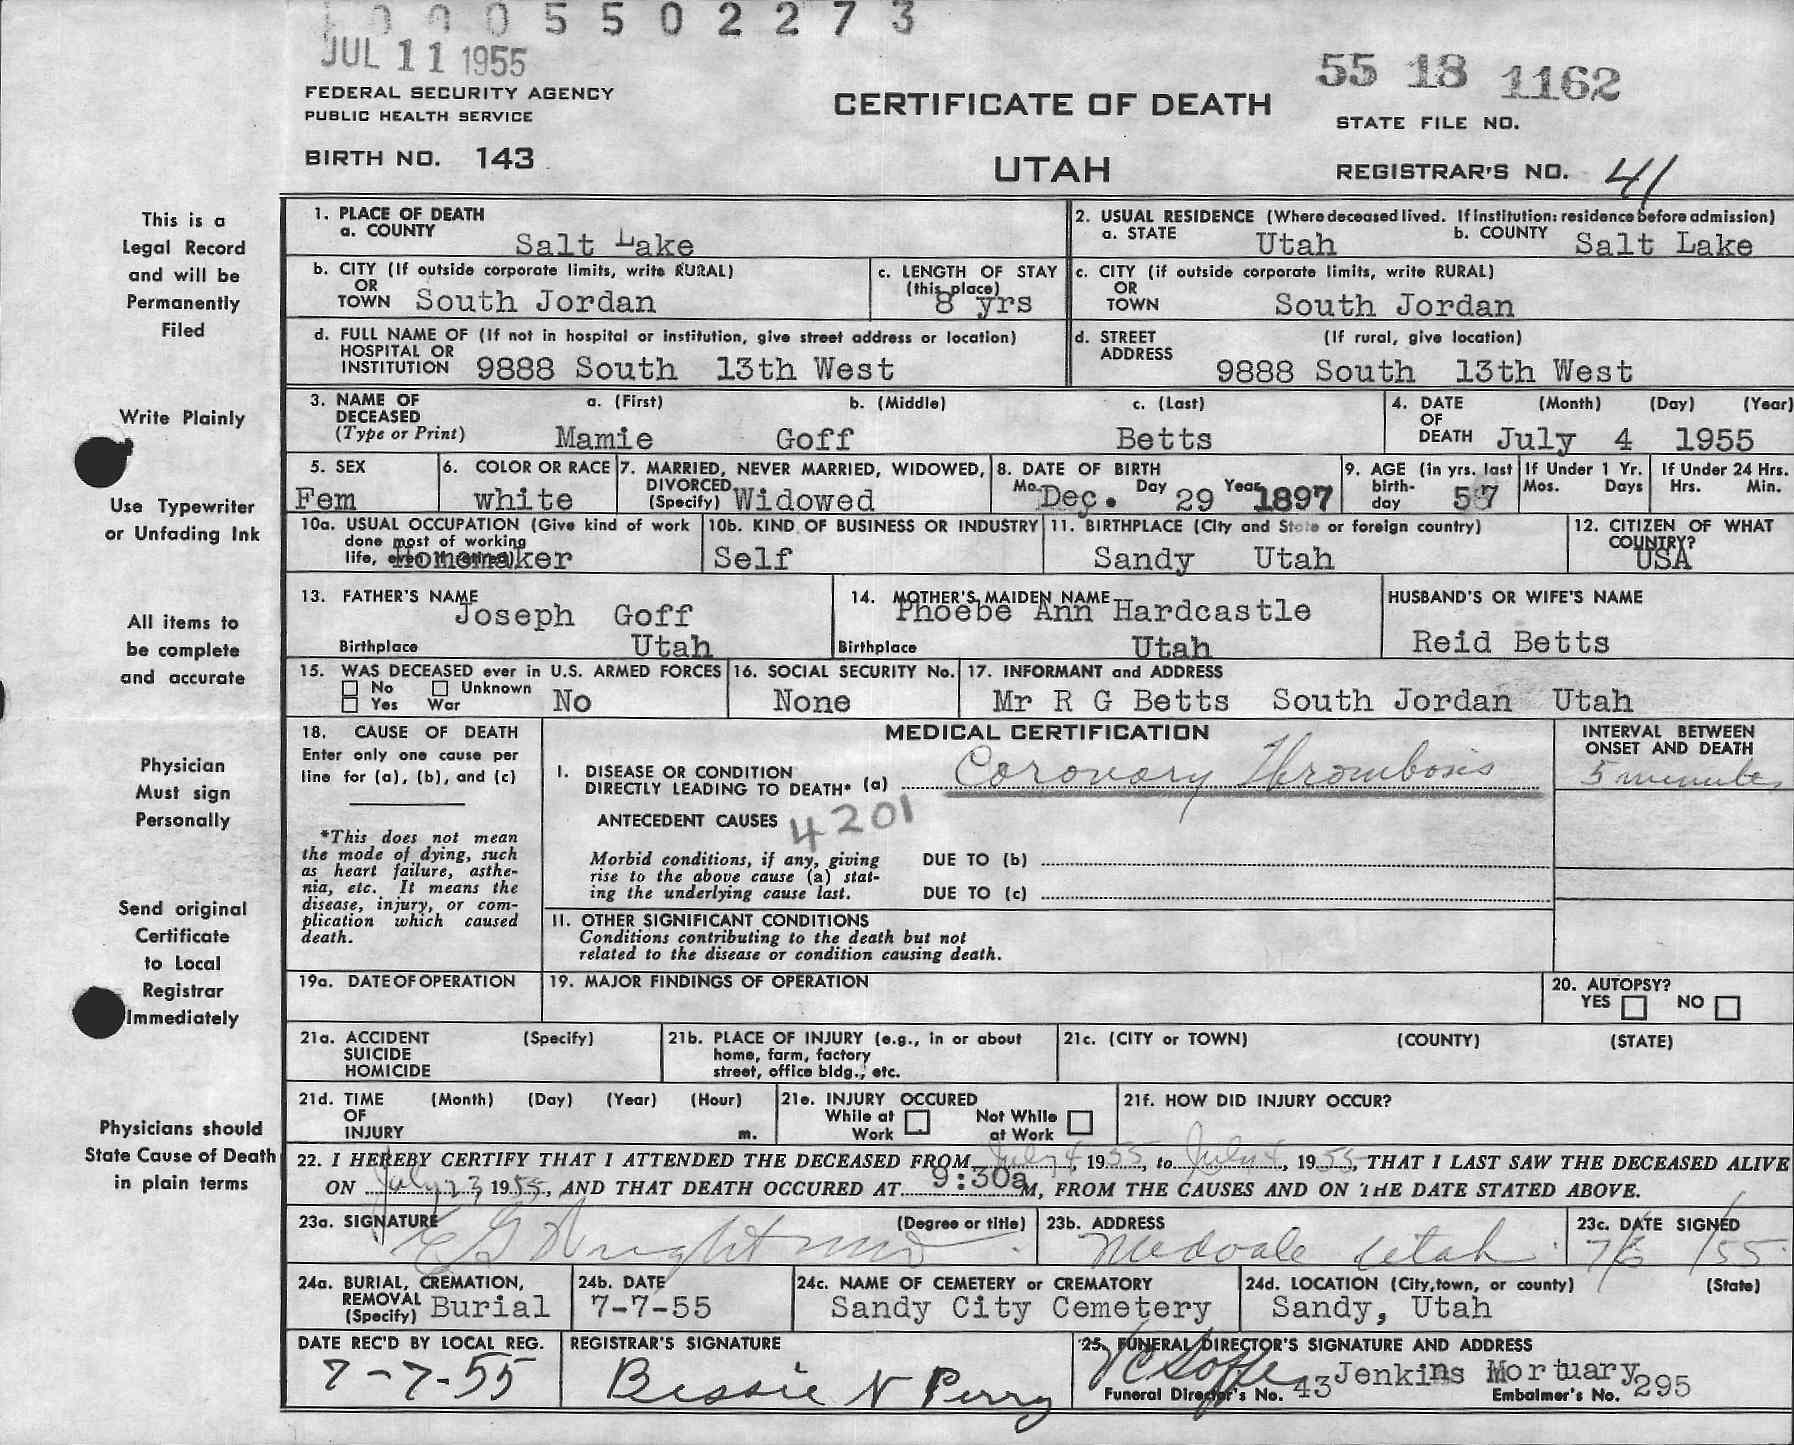 0 0 0 5 5 0 2 2 7 3
JUL 11 1955
55 18 1162
FEDERAL SECURITY AGENCY
PUBLIC HEALTH SERVICE
CERTIFICATE OF DEATH
STATE FILE NO.
BIRTH NO. 143
UTAH
REGISTRAR'S NO. 41
This is a
Legal Record
and will be
Permanently
Filed
Write Plainly
Use Typewriter
or Unfading Ink
All items to
be complete
and accurate
Physician
Must sign
Personally
Send original
Certificate
to Local
Registrar
Immediately
Physicians should
State Cause of Death
in plain terms
1. PLACE OF DEATH
a. COUNTY Salt Lake
2. USUAL RESIDENCE (Where deceased lived. If institution: residence before admission)
a. STATE Utah b. COUNTY Salt Lake
b. CITY (If outside corporate limits, write RURAL)
OR
TOWN South Jordan
c. LENGTH OF STAY
(this place)
8 yrs
c. CITY (if outside corporate limits, write RURAL)
OR
TOWN South Jordan
d. FULL NAME OF (If not in hospital or institution, give street address or location)
HOSPITAL OR
INSTITUTION 9888 South 13th West
d. STREET (If rural, give location)
ADDRESS
9888 South 13th West
3. NAME OF a. (First) b. (Middle) c. (Last)
DECEASED
(Type or Print) Mamie Goff Betts
4. DATE (Month) (Day) (Year)
OF
DEATH July 4 1955
5. SEX
Fem
6. COLOR OR RACE
white
7. MARRIED, NEVER MARRIED, WIDOWED,
DIVORCED
(Specify) Widowed
8. DATE OF BIRTH
Mo. Dec. Day 29 Year 1897
9. AGE (in yrs. last
birth-
day 57
If Under 1 Yr.
Mos. Days
If Under 24 Hrs.
Hrs. Min.
10a. USUAL OCCUPATION (Give kind of work
done most of working
life, even if retired) Homemaker
10b. KIND OF BUSINESS OR INDUSTRY
Self
11. BIRTHPLACE (City and State or foreign country)
Sandy Utah
12. CITIZEN OF WHAT
COUNTRY?
USA
13. FATHER'S NAME
Joseph Goff
Birthplace Utah
14. MOTHER'S MAIDEN NAME
Phoebe Ann Hardcastle
Birthplace Utah
HUSBAND'S OR WIFE'S NAME
Reid Betts
15. WAS DECEASED ever in U.S. ARMED FORCES
No Unknown
Yes War No
16. SOCIAL SECURITY No.
None
17. INFORMANT and ADDRESS
Mr R G Betts South Jordan Utah
18. CAUSE OF DEATH
Enter only one cause per
line for (a), (b), and (c)
*This does not mean
the mode of dying, such
as heart failure, asthe-
nia, etc. It means the
disease, injury, or com-
plication which caused
death.
MEDICAL CERTIFICATION
INTERVAL BETWEEN
ONSET AND DEATH
I. DISEASE OR CONDITION
DIRECTLY LEADING TO DEATH* (a) Coronary Thrombosis
5 minutes
ANTECEDENT CAUSES 4201
Morbid conditions, if any, giving
rise to the above cause (a) stat-
ing the underlying cause last.
DUE TO (b)
DUE TO (c)
II. OTHER SIGNIFICANT CONDITIONS
Conditions contributing to the death but not
related to the disease or condition causing death.
19a. DATE OF OPERATION
19. MAJOR FINDINGS OF OPERATION
20. AUTOPSY?
YES NO
21a. ACCIDENT (Specify)
SUICIDE
HOMICIDE
21b. PLACE OF INJURY (e.g., in or about
home, farm, factory
street, office bldg., etc.
21c. (CITY or TOWN) (COUNTY) (STATE)
21d. TIME (Month) (Day) (Year) (Hour)
OF
INJURY m.
21e. INJURY OCCURED
While at Work
Not While at Work
21f. HOW DID INJURY OCCUR?
22. I HEREBY CERTIFY THAT I ATTENDED THE DECEASED FROM July 4, 1955, to July 4, 1955, THAT I LAST SAW THE DECEASED ALIVE
ON July 23, 1955, AND THAT DEATH OCCURED AT 9:30a M, FROM THE CAUSES AND ON THE DATE STATED ABOVE.
23a. SIGNATURE (Degree or title)
23b. ADDRESS
Midvale Utah
23c. DATE SIGNED
24a. BURIAL, CREMATION,
REMOVAL
(Specify) Burial
24b. DATE
7-7-55
24c. NAME OF CEMETERY or CREMATORY
Sandy City Cemetery
24d. LOCATION (City, town, or county) (State)
Sandy, Utah
DATE REC'D BY LOCAL REG.
7-7-55
REGISTRAR'S SIGNATURE
Bessie N Perry
25. FUNERAL DIRECTOR'S SIGNATURE AND ADDRESS
Jenkins Mortuary
Funeral Director's No. 43 Embalmer's No. 295